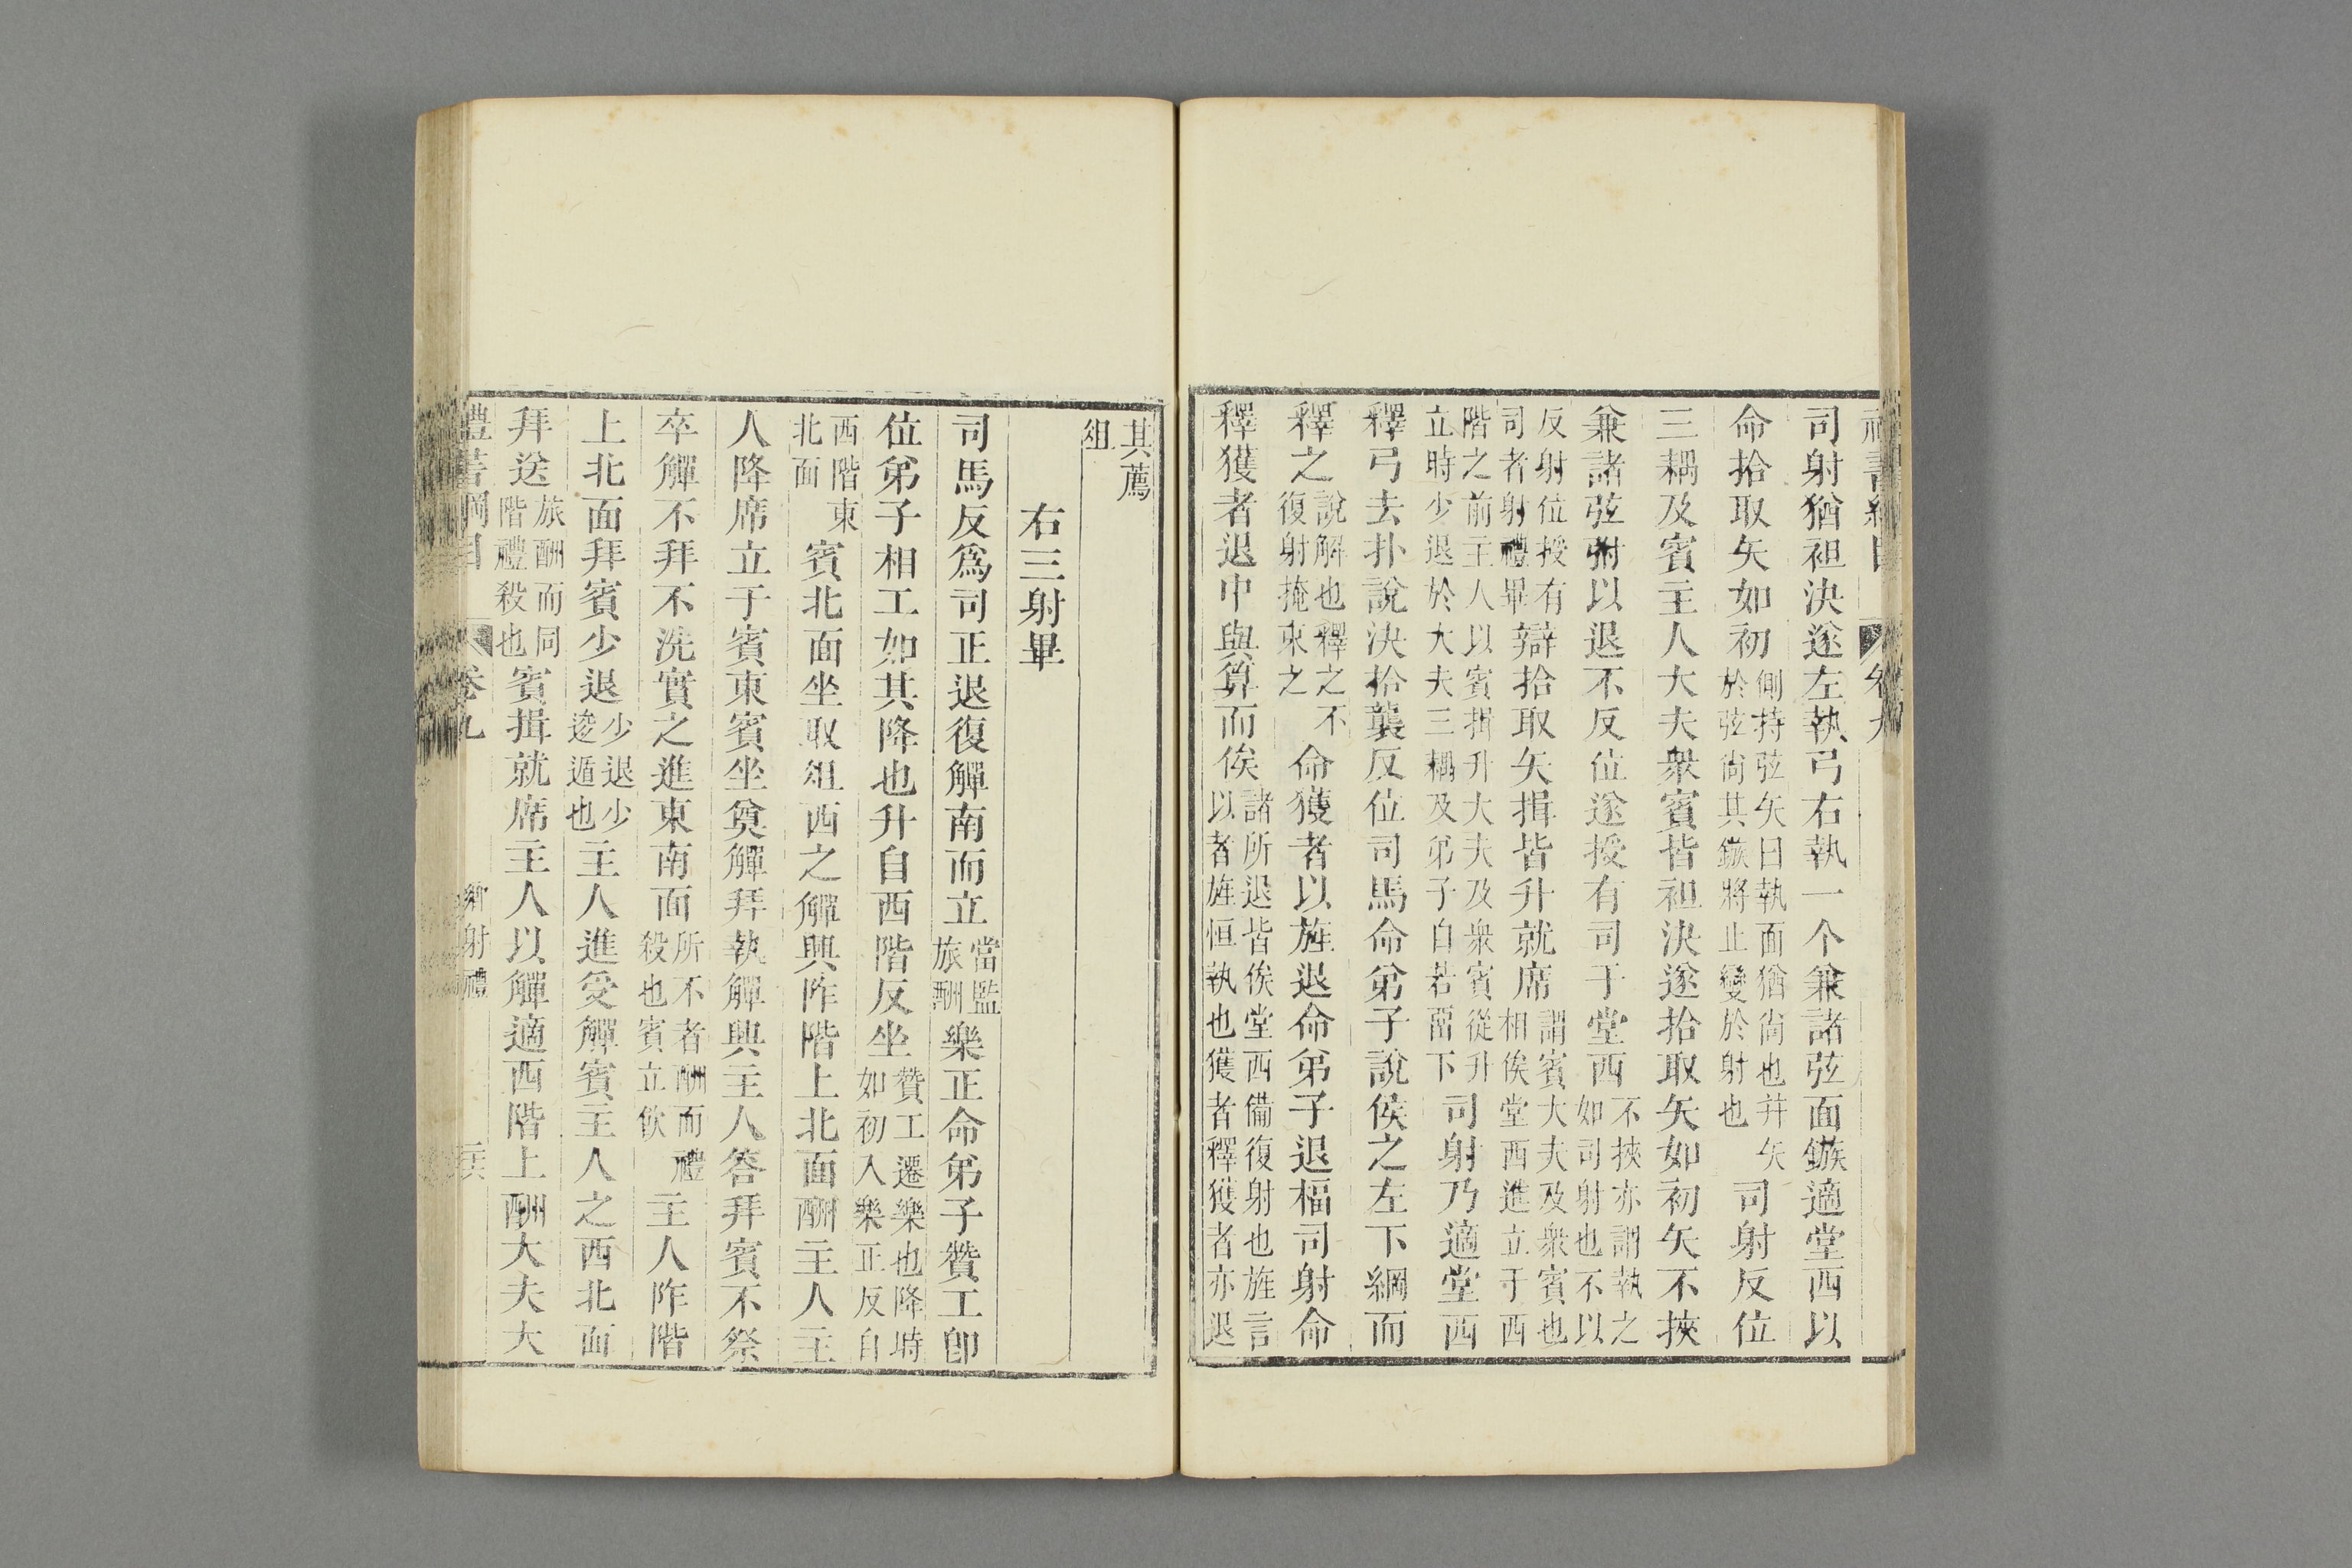 司射猶袒決遂左執弓右執一个兼諸弦面鏃適堂西以
命拾取矢如初側持弦矢曰執面猶尙也幷矢於弦尙其鏃將止變於射也司射反位
三耦及賓主人大夫衆賓皆袒決遂拾取矢如初矢不挾
兼諸弦弣以退不反位遂授有司于堂西不挾亦謂執之如司射也不以
反射位授有司者射禮畢辯拾取矢揖皆升就席謂賓大夫及衆賓也相俟堂西進立于西
階之前主人以賓揖升大夫及衆賓從升立時少退於大夫三耦及弟子自若畱下司射乃適堂西
釋弓去扑說決拾襲反位司馬命弟子說侯之左下綱而
釋之說解也釋之不復射掩束之命獲者以旌退命弟子退楅司射命
釋獲者退中與算而俟諸所退皆俟堂西備復射也旌言以者旌恒執也獲者釋獲者亦退
其薦俎
右三射畢
司馬反爲司正退復觶南而立當監旅酬樂正命弟子贊工卽
位弟子相工如其降也升自西階反坐贊工遷樂也降時如初入樂正反自
西階東北面賓北面坐取俎西之觶興阼階上北面酬主人主
人降席立于賓東賓坐奠觶拜執觶興主人答拜賓不祭
卒觶不拜不洗實之進東南面所不者酬而禮殺也賓立飮主人阼階
上北面拜賓少退少退少逡遁也主人進受觶賓主人之西北面
拜送旅酬而同階禮殺也賓揖就席主人以觶適西階上酬大夫大
禮書綱目 卷九 鄉射禮